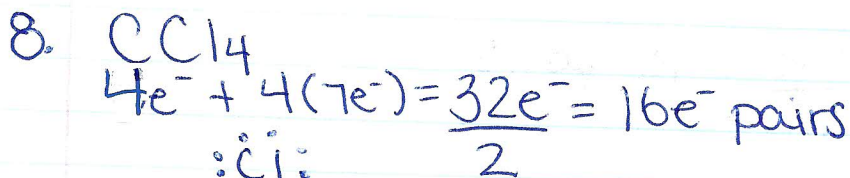 8. CCl4
4e⁻ + 4(7e⁻) = 32e⁻/2 = 16e⁻ pairs
:C̈l: